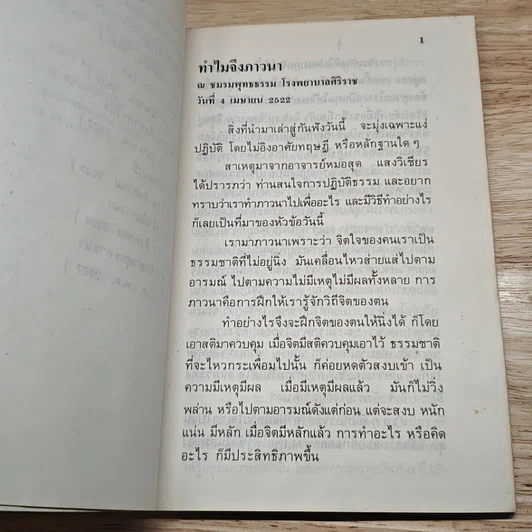 1
ทำไมจึงภาวนา
ณ ชมรมพุทธธรรม โรงพยาบาลศิริราช
วันที่ 4 เมษายน 2522
สิ่งที่นำมาเล่าสู่กันฟังวันนี้ จะมุ่งเฉพาะแง่
ปฏิบัติ โดยไม่อิงอาศัยทฤษฎี หรือหลักฐานใด ๆ
สาเหตุมาจากอาจารย์หมอสุด แสงวิเชียร
ได้ปรารภว่า ท่านสนใจการปฏิบัติธรรม และอยาก
ทราบว่าเราทำภาวนาไปเพื่ออะไร และมีวิธีทำอย่างไร
ก็เลยเป็นที่มาของหัวข้อวันนี้
เรามาภาวนาเพราะว่า จิตใจของคนเราเป็น
ธรรมชาติที่ไม่อยู่นิ่ง มันเคลื่อนไหวส่ายแส่ไปตาม
อารมณ์ ไปตามความไม่มีเหตุไม่มีผลทั้งหลาย การ
ภาวนาคือการฝึกให้เรารู้จักวิถีจิตของตน
ทำอย่างไรจึงจะฝึกจิตของตนให้นิ่งได้ ก็โดย
เอาสติมาควบคุม เมื่อจิตมีสติควบคุมเอาไว้ ธรรมชาติ
ที่จะไหวกระเพื่อมไปนั้น ก็ค่อยหดตัวสงบเข้า เป็น
ความมีเหตุมีผล เมื่อมีเหตุมีผลแล้ว มันก็ไม่วิ่ง
พล่าน หรือไปตามอารมณ์ดังแต่ก่อน แต่จะสงบ หนัก
แน่น มีหลัก เมื่อจิตมีหลักแล้ว การทำอะไร หรือคิด
อะไร ก็มีประสิทธิภาพขึ้น